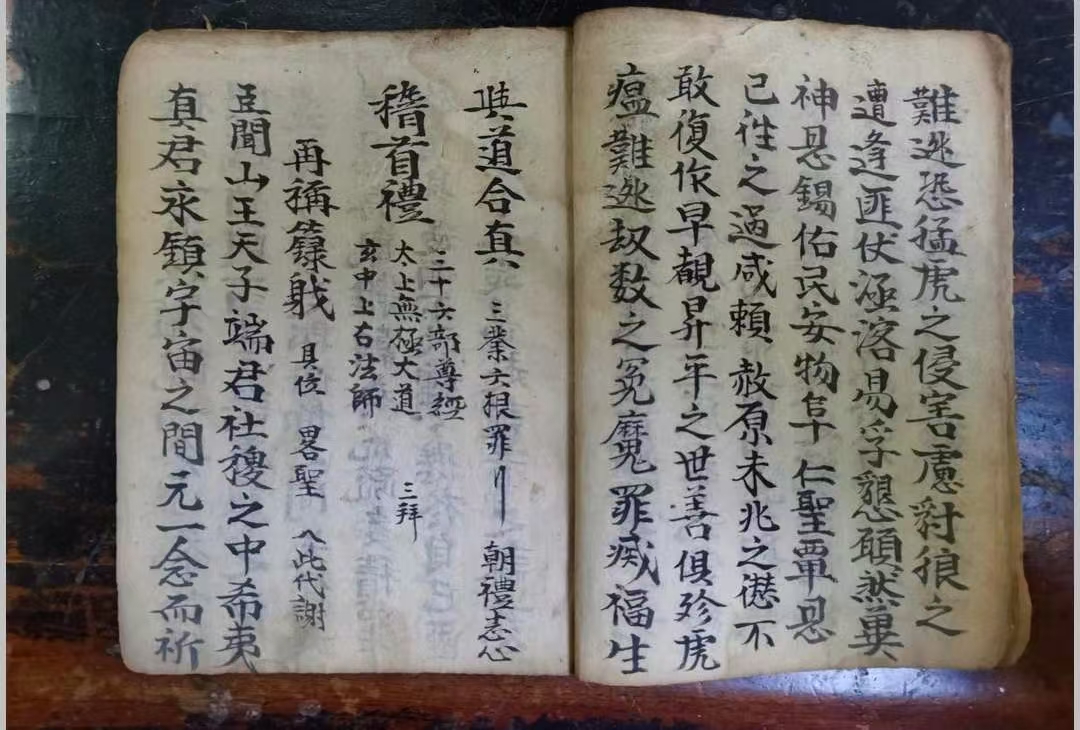 難逃恐猛虎之侵害慮豺狼之
遭逢匪伏洭洛易孚懇頋然異
神恩錫佑民安物阜 仁聖覃恩
已往之過咸賴 赦原未兆之愆不
敢復作早覩昇平之世善俱殄虎
瘟難逃刼数之冤魔罪烕福生
與道合真 三業六根罪 朝禮志心
稽首禮
三十六部尊經
太上無極大道
玄中上古法師 三拜
再稱籙職 具位 畧聖 入此代謝
豆聞山王天子端君社稷之中希夷
真君永鎮字宙之間元一念而祈